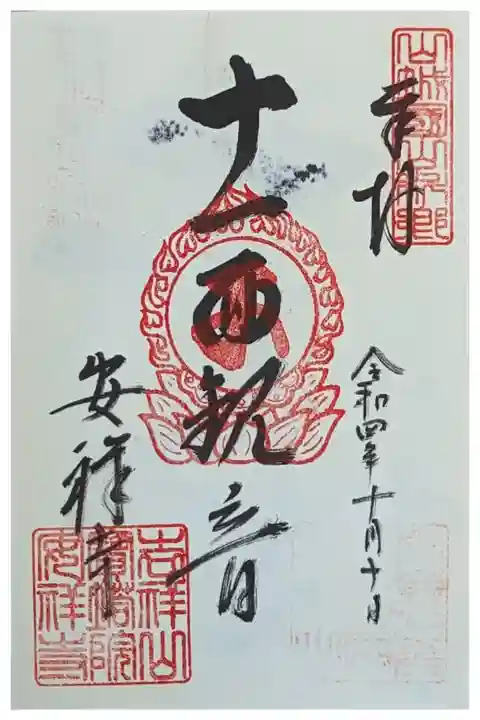 奉拝
山城國山科郷
令和四年十月十日
十一面観音
安祥寺
吉祥山
寳塔院
安祥寺